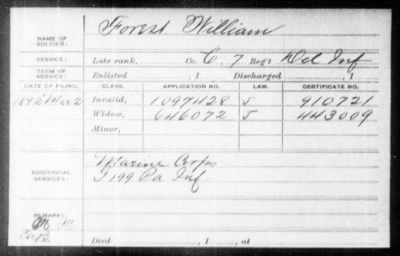 Forest William
NAME OF SOLDIER:
SERVICE: Late rank, Co. C, 7 Reg't Del Inf
TERM OF SERVICE: Enlisted , 1 Discharged , 1
DATE OF FILING. CLASS. APPLICATION NO. LAW. CERTIFICATE NO.
1892 Invalid, 1097428 J 910721
Widow, 646072 J 443009
Minor,
ADDITIONAL SERVICES:
Marine Corps
I 199 Pa Inf
REMARKS:
Died , 1 , at